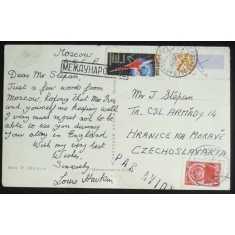 Moscow
МЕЖДУНАРО
Dear Mr Stepan,
Just a few words from
Moscow, hoping that Mrs
and yourself are keeping well.
I very much regret not to be
able to see you during
your stay in England
With my very best
Wishes,
Sincerely
Louis
Mr J Stepan
TR. CSL. ARMÁDY 14
HRANICE NA MORAVĚ
CZECHOSLOVAKIA
PAR AVION